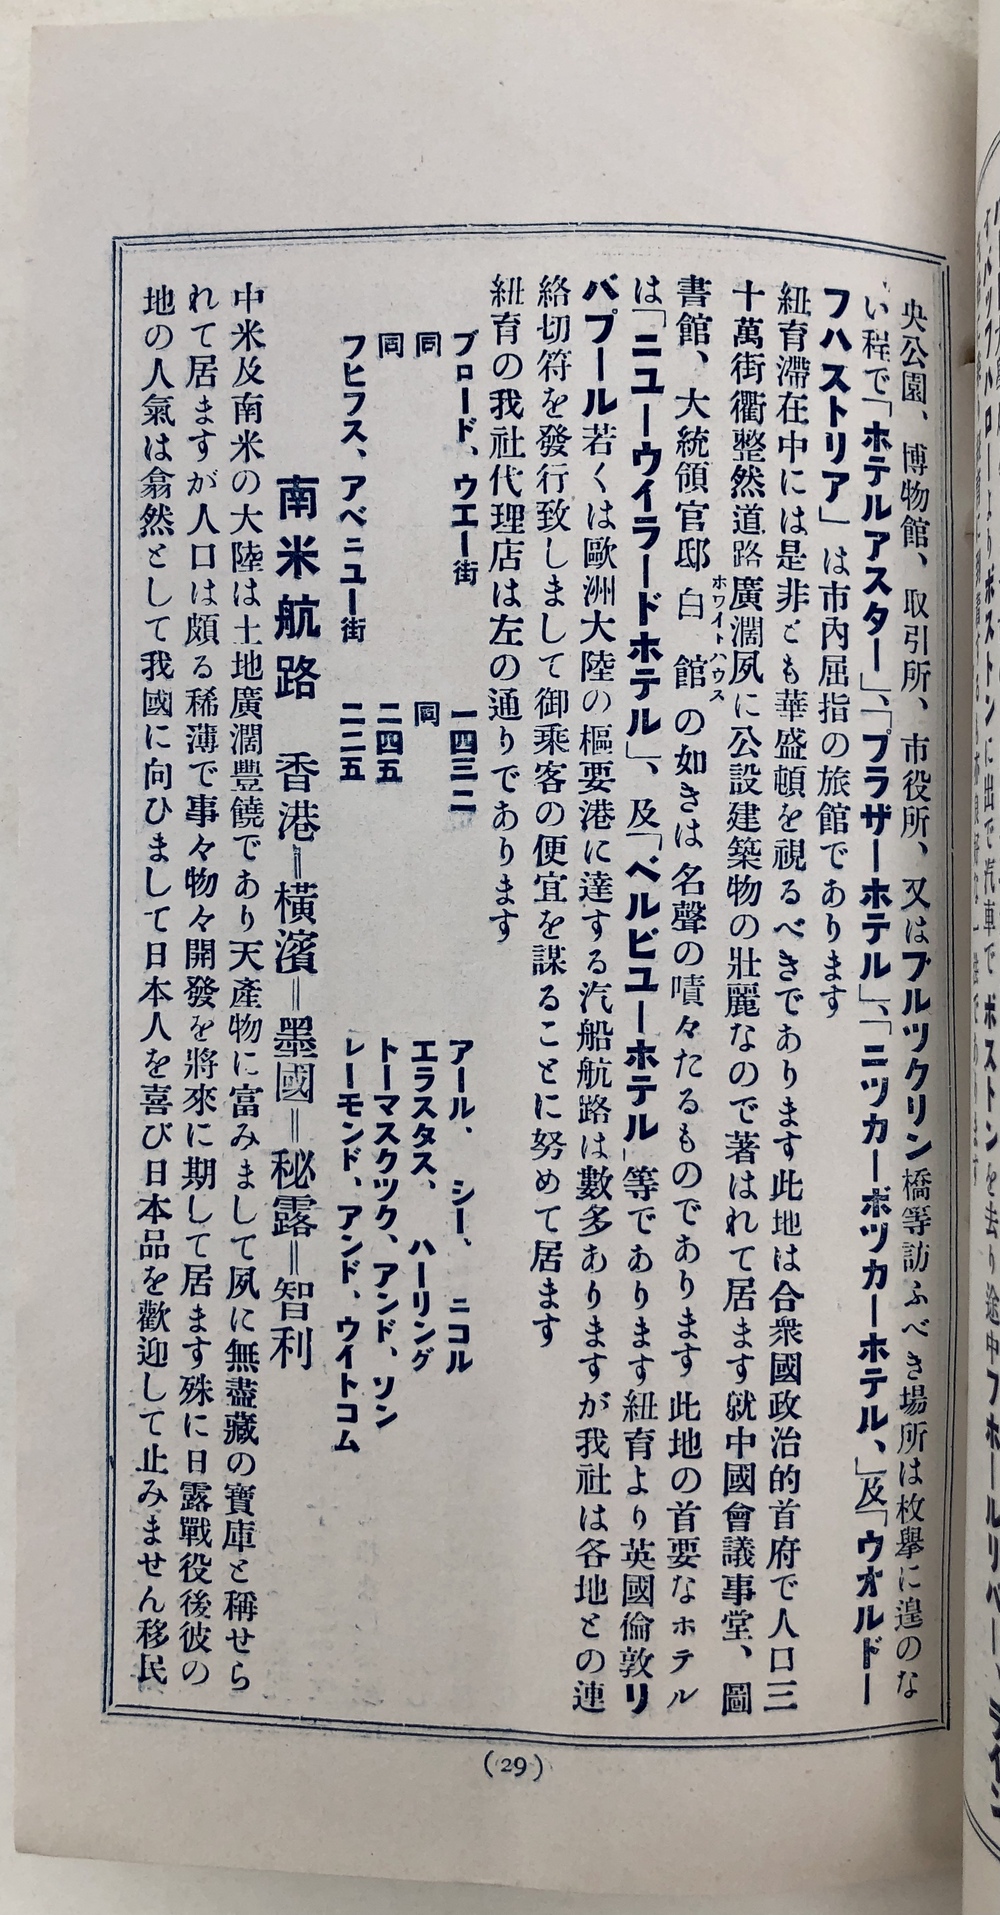 央公園、博物館、取引所、市役所、又はブルックリン橋等訪ふべき場所は枚擧に遑のな
い程で「ホテルアスター」、「プラザーホテル」、「ニツカーボツカーホテル、」及「ウオルドー
フハストリア」は市内屈指の旅館であります
紐育滯在中には是非とも華盛頓を視るべきであります此地は合衆國政治的首府で人口三
十萬街衢整然道路廣濶夙に公設建築物の壯麗なので著はれて居ます就中國會議事堂、圖
書館、大統領官邸白館の如きは名聲の嘖々たるものであります此地の首要なホテル
ホワイトハウス
は「ニユーウイラードホテル」、及「ベルビユーホテル」等であります紐育より英國倫敦リ
バプール若くは歐洲大陸の樞要港に達する汽船航路は數多ありますが我社は各地との連
絡切符を發行致しまして御乘客の便宜を謀ることに努めて居ます
紐育の我社代理店は左の通りであります
ブロード、ウエー街 一四三二 アール、シー、ニコル
同 同 エラスタス、ハーリング
同 二四五 トーマスクツク、アンド、ソン
フヒフス、アベニユー街 二二五 レーモンド、アンド、ウイトコム
南米航路 香港=橫濱=墨國=秘露=智利
中米及南米の大陸は土地廣濶豐饒であり天產物に富みまして夙に無盡藏の寶庫と稱せら
れて居ますが人口は頗る稀薄で事々物々開發を將來に期して居ます殊に日露戰役後彼の
地の人氣は翕然として我國に向ひまして日本人を喜び日本品を歡迎して止みません移民
(29)